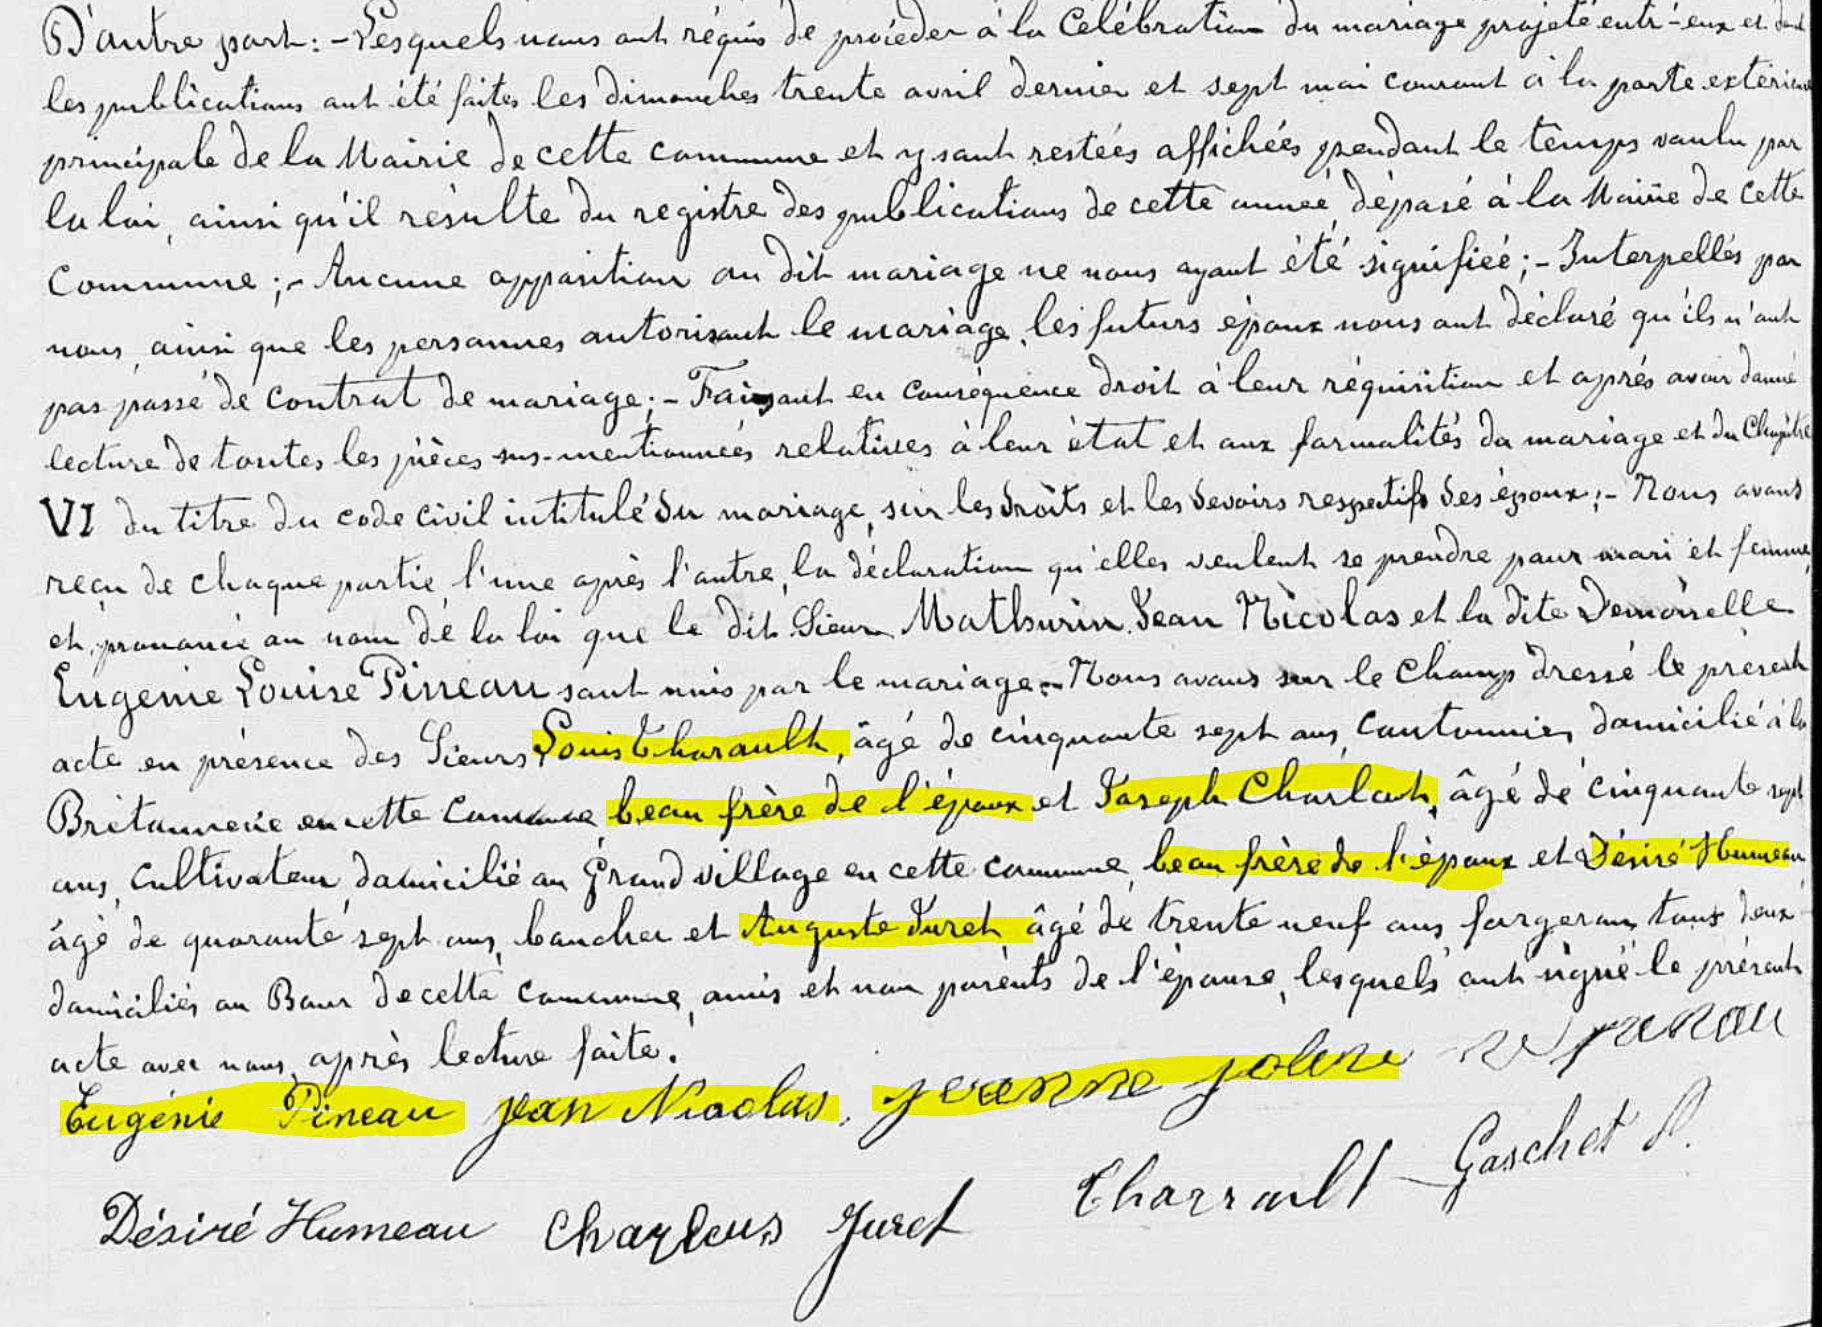 D'autre part: - Lesquels nous ont réquis de procéder à la Célébration du mariage projeté entr-eux et dont
les publications ont été faites les Dimanches trente avril dernier et sept mai courant à la porte extérieure
principale de la Mairie de cette commune et y sont restées affichées pendant le temps voulu par
la loi, ainsi qu'il résulte du registre des publications de cette année, déposé à la Mairie de cette
Commune ; - Aucune opposition au dit mariage ne nous ayant été signifiée ; - Interpellés par
nous, ainsi que les personnes autorisant le mariage, les futurs époux nous ont déclaré qu'ils n'ont
pas passé de contrat de mariage ; - Faisant en conséquence droit à leur réquisition et après avoir donné
lecture de toutes les pièces sus-mentionnées relatives à leur état et aux formalités du mariage et du Chapitre
VI du titre du code civil intitulé du mariage, sur les droits et les devoirs respectifs des époux ; - Nous avons
reçu de chaque partie, l'une après l'autre, la déclaration qu'elles veulent se prendre pour mari et femme,
et prononcé au nom de la loi que le dit Sieur Mathurin Jean Nicolas et la dite Demoiselle
Eugénie Louise Pineau sont unis par le mariage. - Nous avons sur le champ dressé le présent
acte en présence des Sieurs Louis Tharault, âgé de cinquante sept ans, cantonnier, domicilié à la
Brétannerie en cette commune, beau frère de l'époux et Joseph Charlout, âgé de cinquante sept
ans, cultivateur, domicilié au Grand village en cette commune, beau frère de l'époux et Désiré Humeau
âgé de quarante sept ans, boucher et Auguste Juret, âgé de trente neuf ans, forgeron, tous deux
domiciliés au Bourg de cette commune, amis et non parents de l'épouse, lesquels ont signé le présent
acte avec nous, après lecture faite.
Eugénie Pineau jean Nicolas. jeanne joline
Désiré Humeau Charlous Juret Tharrault Gaschet